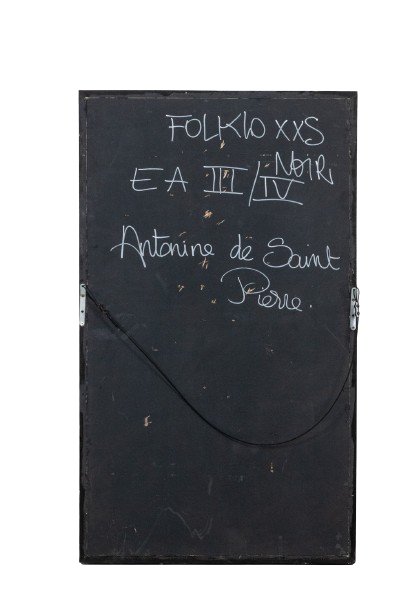 FOLKLO XXS
NOIR
EA III/IV
Antonine de Saint
Pierre.